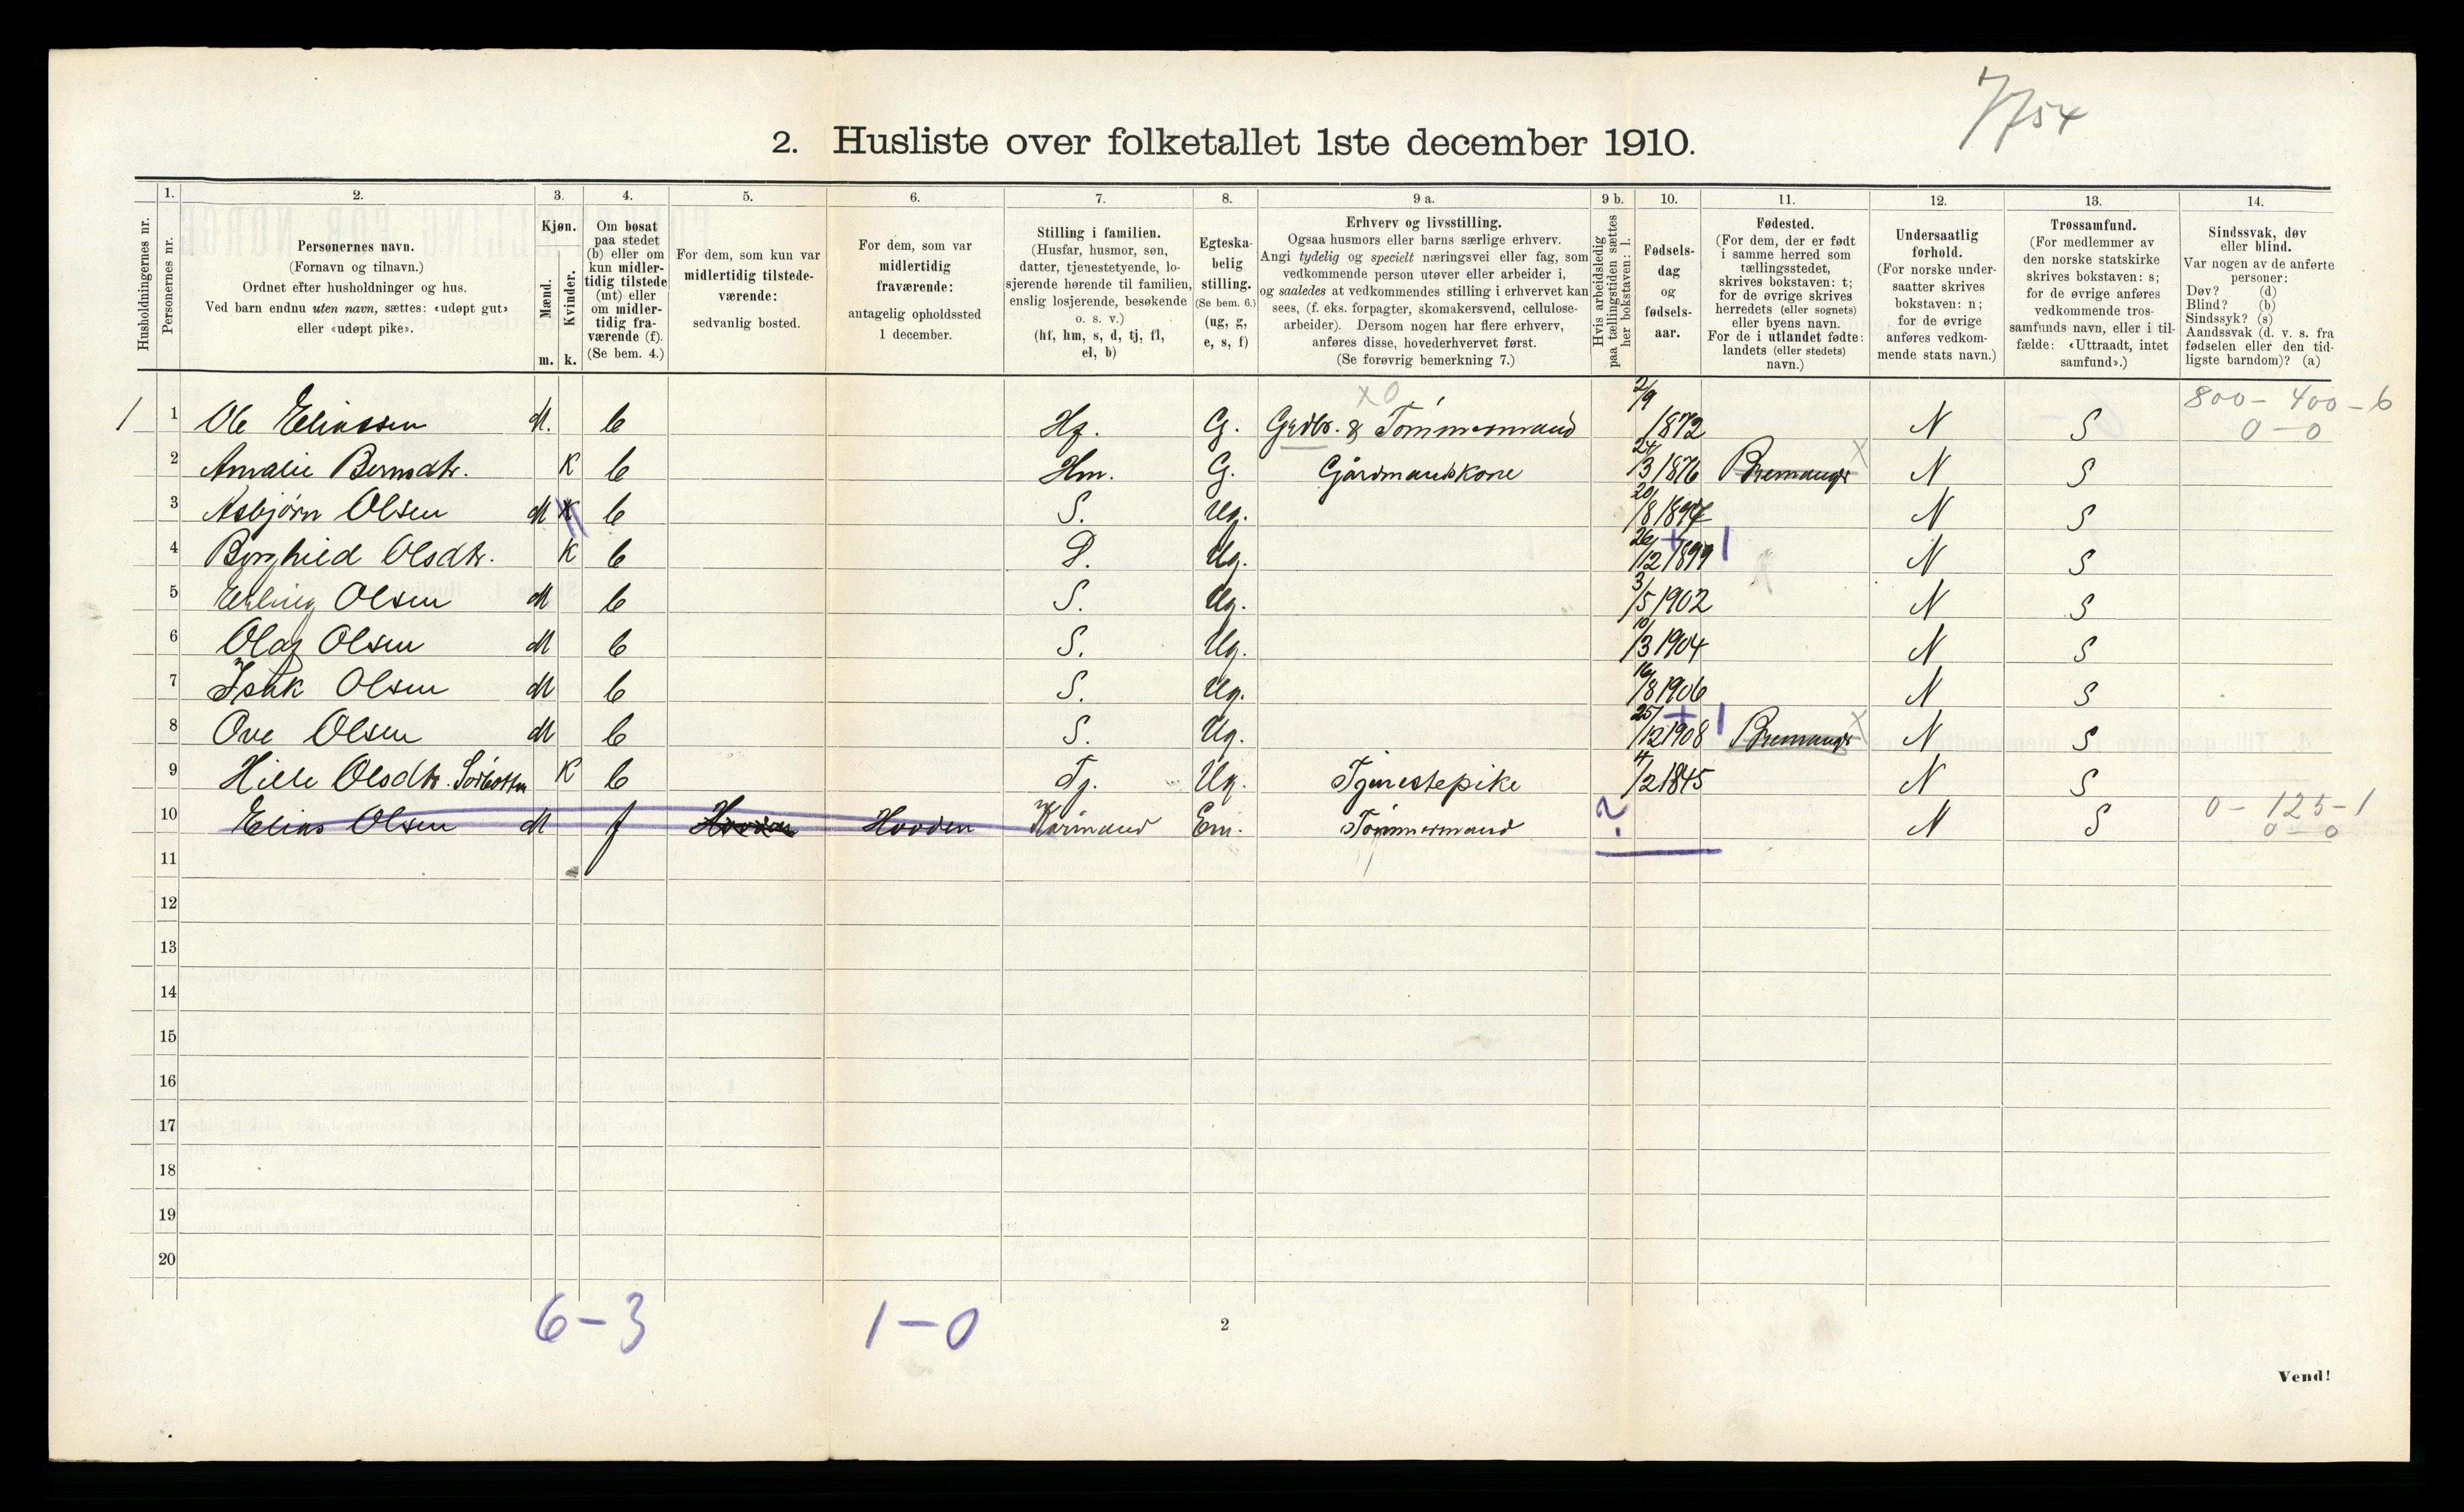 7754
2. Husliste over folketallet 1ste december 1910.
Husholdningernes nr.
1. Personernes nr.
2. Personernes navn. (Fornavn og tilnavn.) Ordnet efter husholdninger og hus. Ved barn endnu uten navn, sættes: «udøpt gut» eller «udøpt pike».
3. Kjøn. Mænd. m. Kvinder. k.
4. Om bosat paa stedet (b) eller om kun midlertidig tilstede (mt) eller om midlertidig fraværende (f). (Se bem. 4.)
5. For dem, som kun var midlertidig tilstedeværende: sedvanlig bosted.
6. For dem, som var midlertidig fraværende: antagelig opholdssted 1 december.
7. Stilling i familien. (Husfar, husmor, søn, datter, tjenestetyende, losjerende hørende til familien, enslig losjerende, besøkende o. s. v.) (hf, hm, s, d, tj, fl, el, b)
8. Egteskabelig stilling. (Se bem. 6.) (ug, g, e, s, f)
9 a. Erhverv og livsstilling. Ogsaa husmors eller barns særlige erhverv. Angi tydelig og specielt næringsvei eller fag, som vedkommende person utøver eller arbeider i, og saaledes at vedkommendes stilling i erhvervet kan sees, (f. eks. forpagter, skomakersvend, cellulosearbeider). Dersom nogen har flere erhverv, anføres disse, hovederhvervet først. (Se forøvrig bemerkning 7.)
9 b. Hvis arbeidsledig paa tællingstiden sættes her bokstaven: l.
10. Fødselsdag og fødselsaar.
11. Fødested. (For dem, der er født i samme herred som tællingsstedet, skrives bokstaven: t; for de øvrige skrives herredets (eller sognets) eller byens navn. For de i utlandet fødte: landets (eller stedets) navn.)
12. Undersaatlig forhold. (For norske undersaatter skrives bokstaven: n; for de øvrige anføres vedkommende stats navn.)
13. Trossamfund. (For medlemmer av den norske statskirke skrives bokstaven: s; for de øvrige anføres vedkommende trossamfunds navn, eller i tilfælde: «Uttraadt, intet samfund».)
14. Sindssvak, døv eller blind. Var nogen av de anførte personer: Døv? (d) Blind? (b) Sindssyk? (s) Aandssvak (d. v. s. fra fødselen eller den tidligste barndom)? (a)
x 0 800 – 400 – 6
1 1 Ole Eliassen M. b Hf. G. Grdbr. & Tömmermand 2/9 1872 N S 0 – 0
2 Amalie Berndtr. K b Hm. G. Gårdmandskone 24/3 1876 Bremanger x N S
3 Asbjørn Olsen M K b S. Ug. 20/8 1897 N S
4 Borghild Olsdtr. K b D. Ug. 26/12 1899 N S
5 Erling Olsen M b S. Ug. 3/5 1902 N S
6 Olaf Olsen M b S. Ug. 10/3 1904 N S
7 Isak Olsen M b S. Ug. 16/8 1906 N S
8 Ove Olsen M b S. Ug. 25/12 1908 Bremanger x N S
9 Hille Olsdtr. Sörbotten K b Tj. Ug. Tjenestepike 4/2 1845 N S
10 Elias Olsen M f Hovden Hovden Kårmand Em. Tömmermand ? N S 0 – 125 – 1
0 – 0
11
12
13
14
15
16
17
18
19
20
6 – 3 1 – 0
2
Vend!